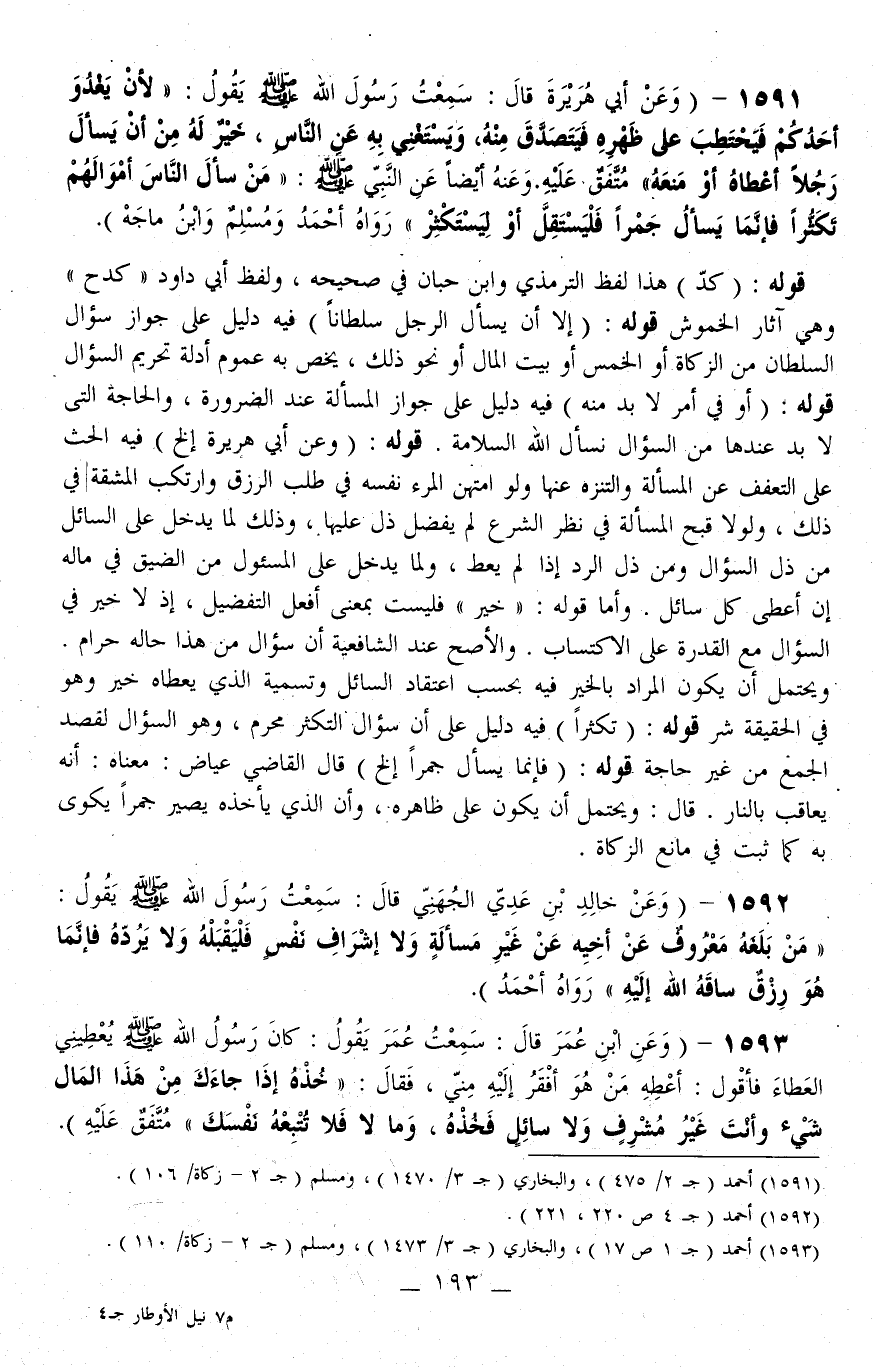 ١٥٩١ - ( وَعَنْ أبي هُرَيْرَةَ قالَ : سَمِعْتُ رَسُولَ الله ﷺ يَقُولُ : « لأنْ يَغْدُوَ
أحَدُكُمْ فَيَحْتَطِبَ على ظَهْرِهِ فَيَتَصَدَّقَ مِنْهُ، وَيَسْتَغْنِي بِهِ عَنِ النَّاسِ ، خَيْرٌ لَهُ مِنْ أنْ يَسألَ
رَجُلاً أعْطاهُ أوْ مَنعَهُ» مُتَّفَقٌ عَلَيْهِ.وَعَنهُ أيْضاً عَنِ النَّبِيّ ﷺ : « مَنْ سألَ النَّاسَ أمْوَالَهُمْ
تَكَثُّراً فإنَّمَا يَسألُ جَمْراً فَلْيَسْتَقِلَّ أوْ لِيَسْتَكْثِرْ » رَوَاهُ أحْمَدُ وَمُسْلِمٌ وَابْنُ ماجَهْ ).
قوله : ( كدّ ) هذا لفظ الترمذي وابن حبان في صحيحه ، ولفظ أبي داود « كدح »
وهي آثار الخموش قوله : ( إلا أن يسأل الرجل سلطاناً ) فيه دليل على جواز سؤال
السلطان من الزكاة أو الخمس أو بيت المال أو نحو ذلك ، يخص به عموم أدلة تحريم السؤال
قوله : ( أو في أمر لا بد منه ) فيه دليل على جواز المسألة عند الضرورة ، والحاجة التى
لا بد عندها من السؤال نسأل الله السلامة . قوله : ( وعن أبي هريرة إلخ ) فيه الحث
على التعفف عن المسألة والتنزه عنها ولو امتهن المرء نفسه في طلب الرزق وارتكب المشقة في
ذلك ، ولولا قبح المسألة في نظر الشرع لم يفضل ذل عليها ، وذلك لما يدخل على السائل
من ذل السؤال ومن ذل الرد إذا لم يعط ، ولما يدخل على المسئول من الضيق في ماله
إن أعطى كل سائل . وأما قوله : « خير » فليست بمعنى أفعل التفضيل ، إذ لا خير في
السؤال مع القدرة على الاكتساب . والأصح عند الشافعية أن سؤال من هذا حاله حرام .
ويحتمل أن يكون المراد بالخير فيه بحسب اعتقاد السائل وتسمية الذي يعطاه خير وهو
في الحقيقة شر قوله : ( تكثراً ) فيه دليل على أن سؤال التكثر محرم ، وهو السؤال لقصد
الجمع من غير حاجة قوله : ( فإنما يسأل جمراً إلخ ) قال القاضي عياض : معناه : أنه
يعاقب بالنار . قال : ويحتمل أن يكون على ظاهره ، وأن الذي يأخذه يصير جمراً يكوى
به كما ثبت في مانع الزكاة .
١٥٩٢ - ( وَعَنْ خالِدِ بْنِ عَدِيّ الجُهَنِيّ قالَ : سَمِعْتُ رَسُولَ الله ﷺ يَقُولُ :
« مَنْ بَلَغَهُ مَعْرُوفٌ عَنْ أخِيهِ عَنْ غَيْرِ مَسألَةٍ وَلا إشْرَافِ نَفْسٍ فَلْيَقْبَلْهُ وَلا يَرُدّهُ فإنَّمَا
هُوَ رِزْقٌ ساقَهُ الله إلَيْهِ » رَوَاهُ أحْمَدُ ).
١٥٩٣ - ( وَعَنِ ابْنِ عُمَرَ قالَ : سَمِعْتُ عُمَرَ يَقُولُ : كانَ رَسُولُ الله ﷺ يُعْطِيني
العَطاءَ فأقُول : أعْطِهِ مَنْ هُوَ أفْقَرُ إلَيْهِ مِنّي ، فَقالَ : « خُذْهُ إذَا جاءَكَ مِنْ هَذَا المَال
شَيْء وأنْتَ غَيْرُ مُشْرِفٍ وَلا سائِلٍ فَخُذْهُ ، وَما لا فَلا تُتْبِعْهُ نَفْسَكَ » مُتَّفَقٌ عَلَيْهِ ).
(١٥٩١) أحمد ( جـ ٢/ ٤٧٥ ) ، والبخاري ( جـ ٣/ ١٤٧٠ ) ، ومسلم ( جـ ٢ - زكاة/ ١٠٦ ) .
(١٥٩٢) أحمد ( جـ ٤ ص ٢٢٠ ، ٢٢١ ) .
(١٥٩٣) أحمد ( جـ ١ ص ١٧ ) ، والبخاري ( جـ ٣/ ١٤٧٣ ) ، ومسلم ( جـ ٢ - زكاة/ ١١٠ ) .
— ١٩٣ —
م٧ نيل الأوطار جـ٤